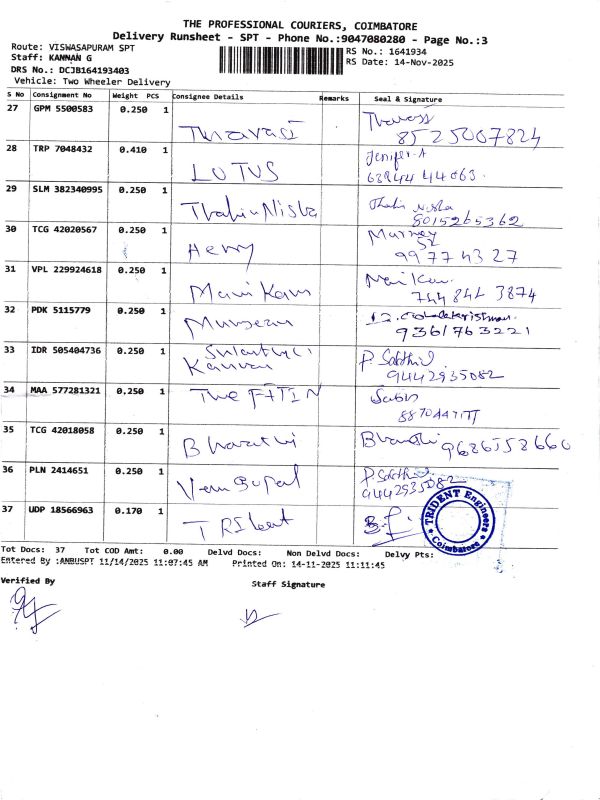 THE PROFESSIONAL COURIERS, COIMBATORE
Delivery Runsheet - SPT - Phone No.:9047080280 - Page No.:3
Route: VISWASAPURAM SPT
RS No.: 1641934
Staff: KANNAN G
RS Date: 14-Nov-2025
DRS No.: DCJB164193403
Vehicle: Two Wheeler Delivery
S No Consignment No Weight PCS Consignee Details Remarks Seal & Signature
27 GPM 5500583 0.250 1
8525007824
28 TRP 7048432 0.410 1 LOTUS Jenifer.A
29 SLM 382340995 0.250 1 Thahir Nisha
8015265362
30 TCG 42020567 0.250 1 Henry
99774327
31 VPL 229924618 0.250 1 Mani Kam
744 844 3874
32 PDK 5115779 0.250 1
9361763221
33 IDR 505404736 0.250 1 Kannan
9442935082
34 MAA 577281321 0.250 1 The FITIN
35 TCG 42018058 0.250 1 Bharathi 9686558660
36 PLN 2414651 0.250 1 Venu Gopal
9442935082
37 UDP 18566963 0.170 1 TRIdent
TRIDENT Engineers
Coimbatore
Tot Docs: 37 Tot COD Amt: 0.00 Delvd Docs: Non Delvd Docs: Delvy Pts:
Entered By :ANBUSPT 11/14/2025 11:07:45 AM Printed On: 14-11-2025 11:11:45
Verified By
Staff Signature